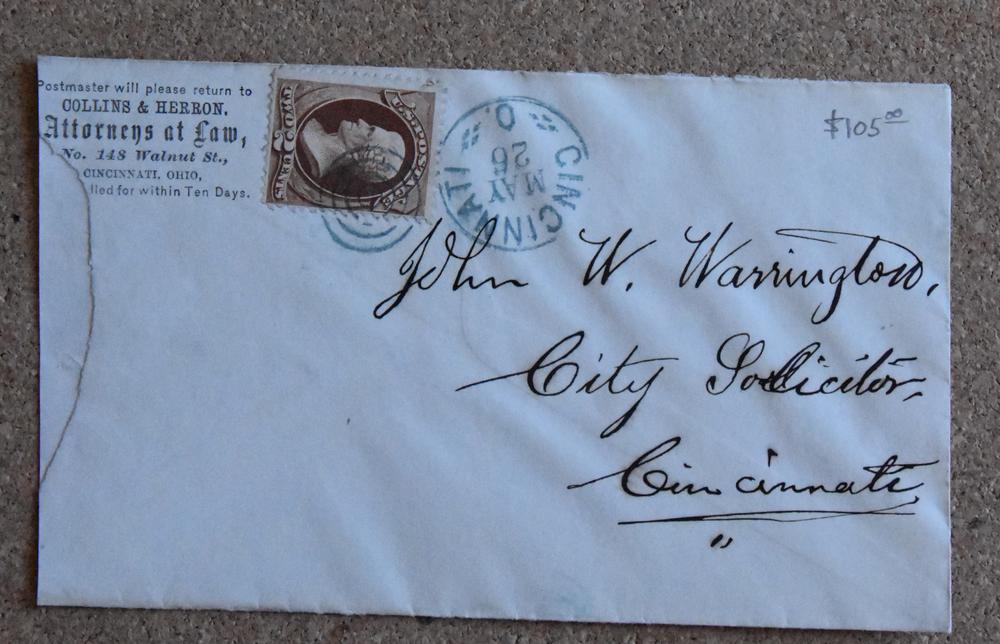 Postmaster will please return to
COLLINS & HERRON,
Attorneys at Law,
No. 148 Walnut St.,
CINCINNATI, OHIO,
lled for within Ten Days.
U.S. POSTAGE
CINCINNATI O.
MAY
26
$105⁰⁰
John W. Warrington,
City Solicitor,
Cincinnati
"